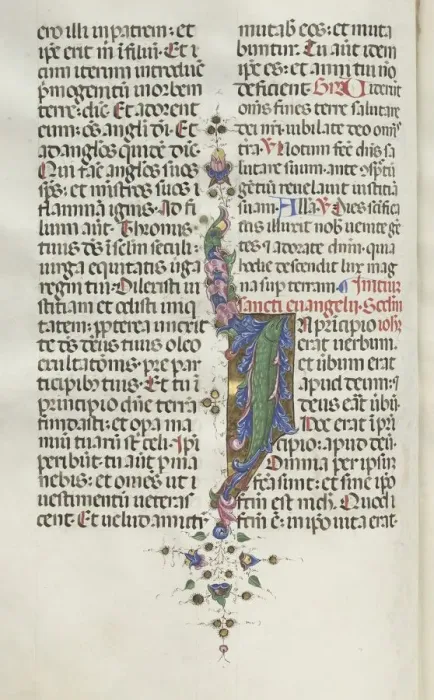 ero illi in patrem: et
ipe erit in i filiū. Et
cum iterum introduc̄
p̄mogenitū in orbem
terre: dic̄. Et adorent
eum: oēs angli dī. Et
ad anglos quidē dic̄.
Qui fac̄ anglos suos
sp̄s: et ministros suos
flammā ignis. Ad fi
lium aūt. Thronus
tuus dē in sclm seculi:
uirga equitatis uirga
regni tui. Dilexisti iu
stitiam et odisti iniq
tatem: propterea unxit
te dē deus tuus oleo
exultatōnis: pre par
ticipibꝫ tuis. Et tu ī
principio dn̄e terrā
fundasti: et opa ma
nuū tuarū sūt celi. Ipi
peribūt: tu aūt pma
nebis: et omēs ut
uestimentū ueteras
cent. Et uelud amictū
mutab eos: et muta
buntur. Tu aūt idem
ipe es: et anni tui nō
deficient. Viderūt
om̄s fines terre salutare
dei nri: iubilate deo om̄is
tra. V Notum fec̄ dn̄s sa
lutare suum: ante ꝯspectū
gētiū reuelauit iustitiā
suam. Alla. V Dies sc̄ifica
tus illuxit nob̄: uenite gē
tes ⁊ adorate dnm̄: quia
hodie descendit lux mag
na sup terram. Initiū
sancti euangelii. Scdm̄
In pricipio ioh̄
erat uerbum.
et ūbum erat
apud deum: ⁊
deus eāt ūbū.
Hoc erat ī prī
cipio: apud deū.
Omnia per ipsum
fc̄a sunt: et sine ipo
fc̄m est nich̄. Quod
fc̄m ē: in ipo uita erat.